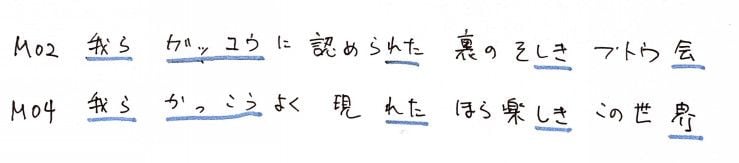 M02 我ら ガッコウに 認められた 裏のそしき ブトウ会
M04 我ら かっこうよく 現れた ほら楽しき この世界